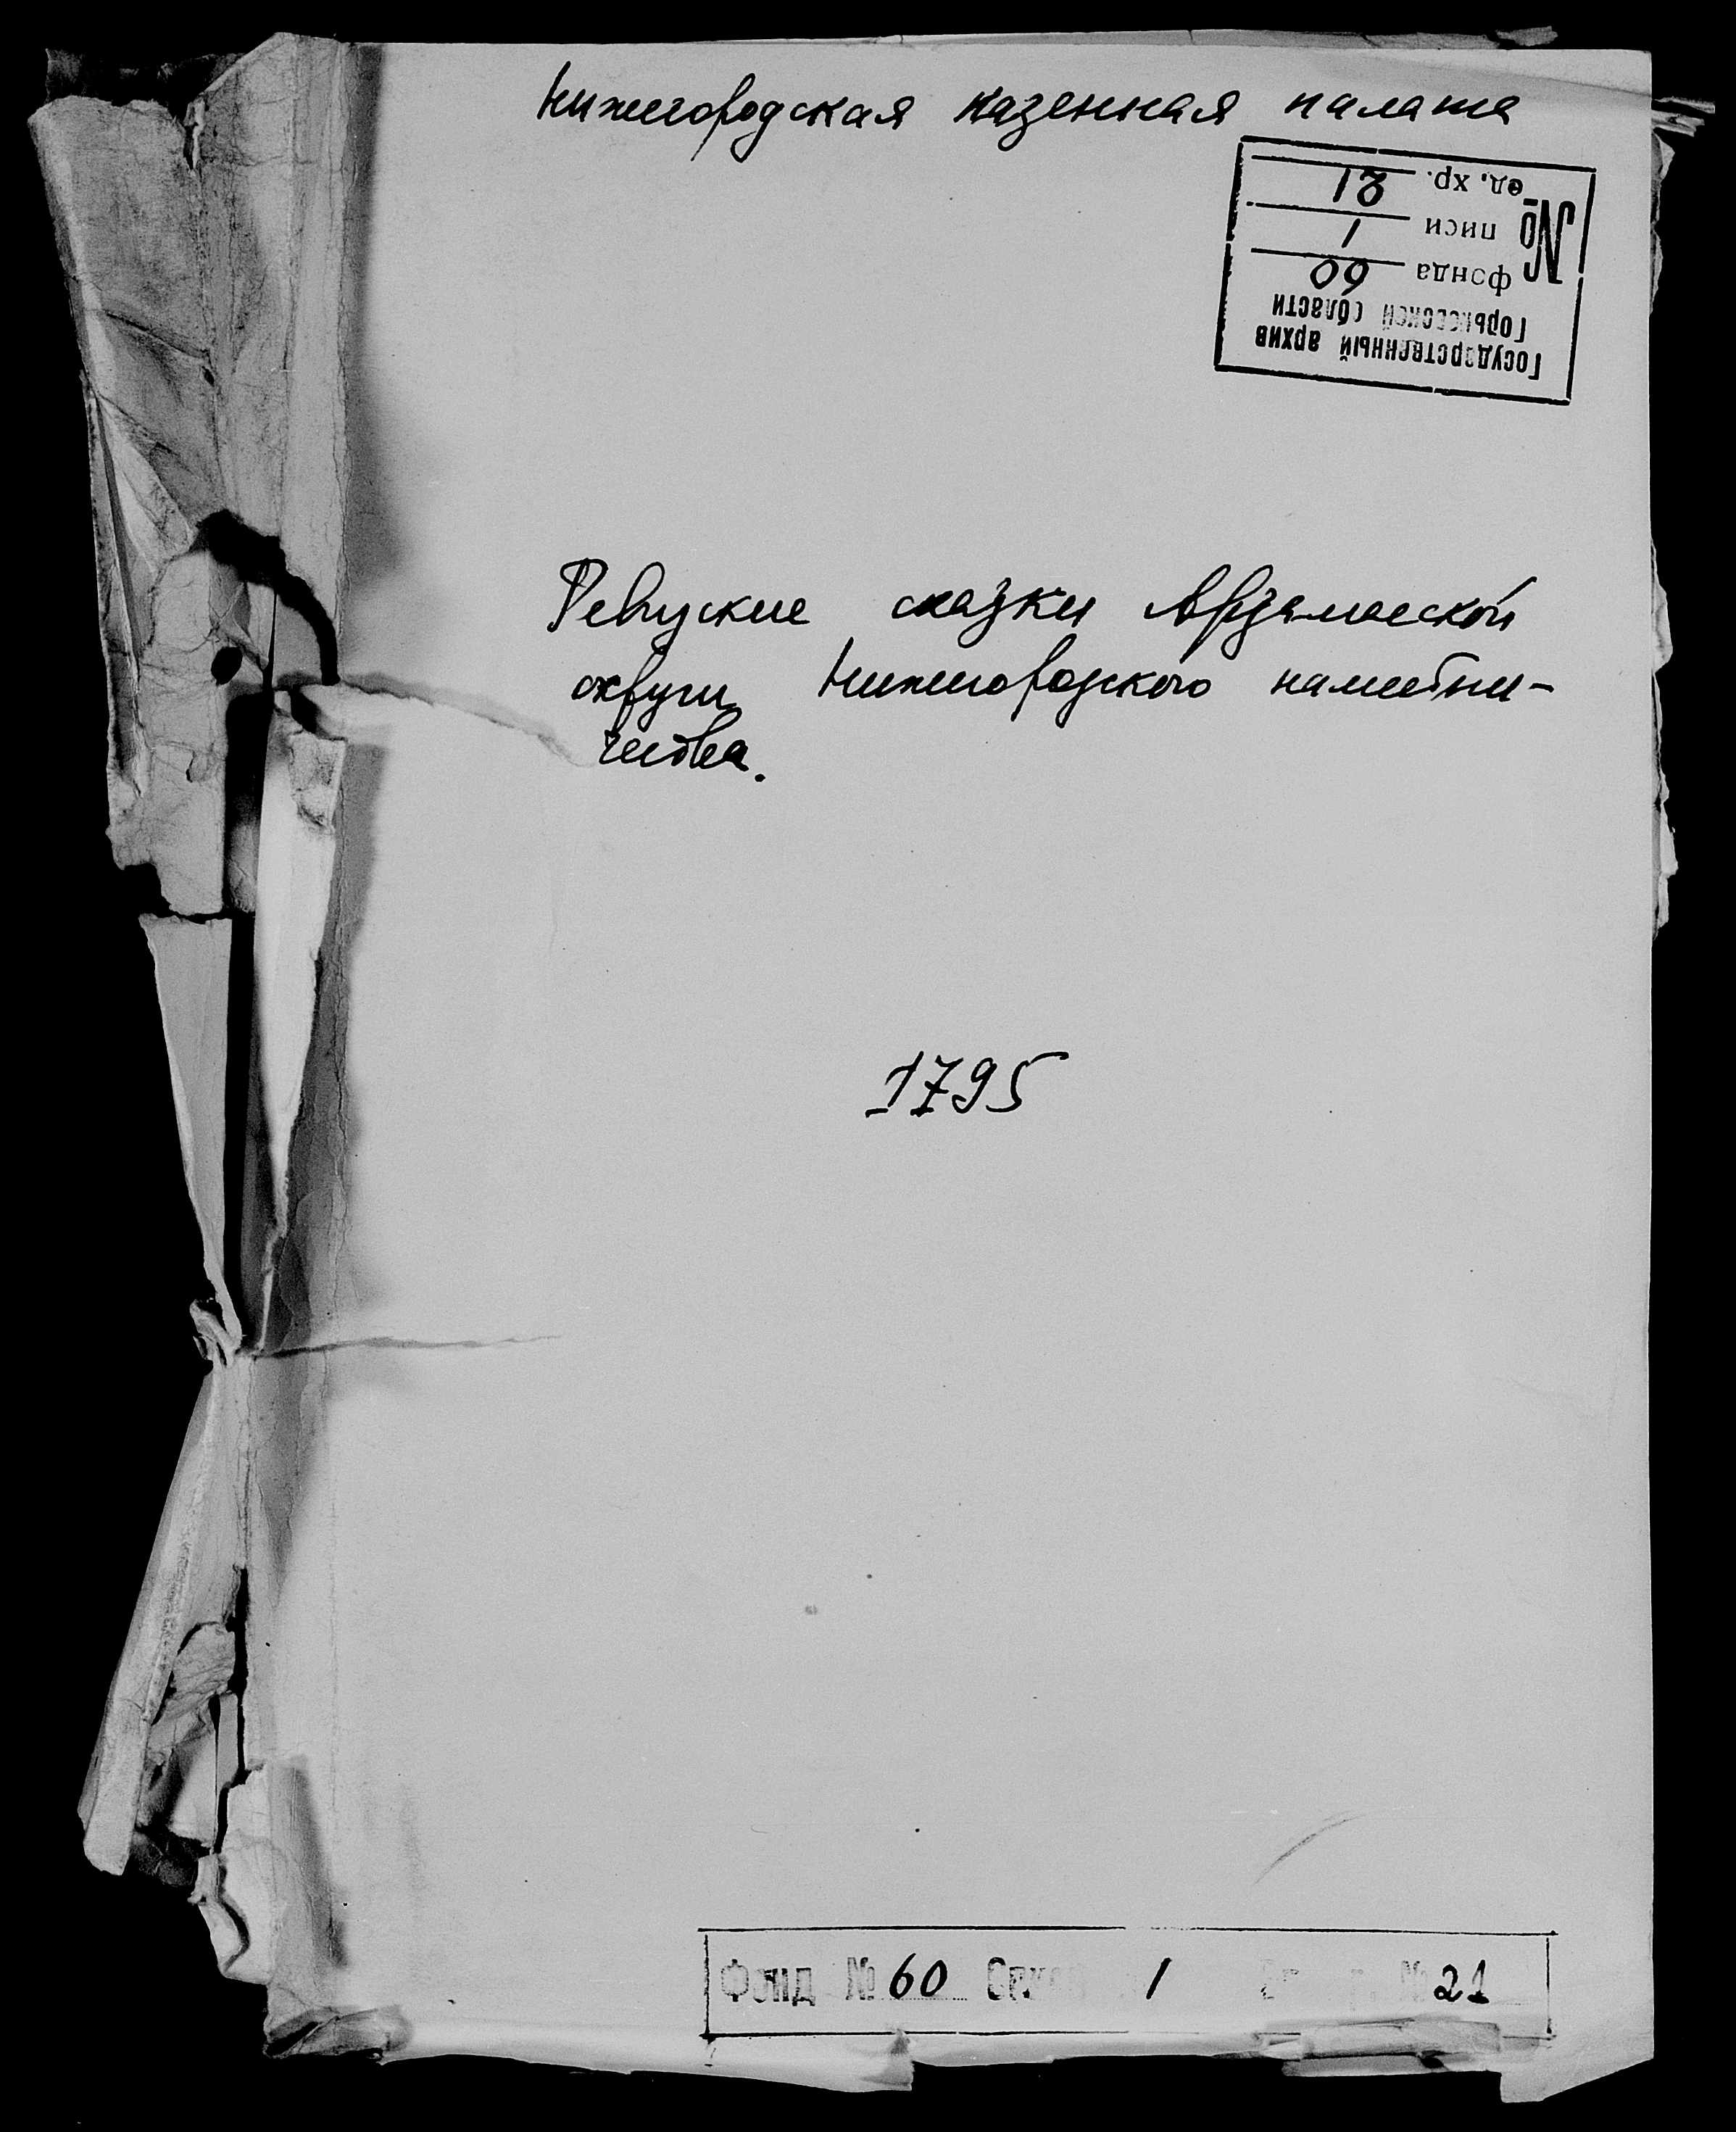 Нижегородская казенная палата
Государственный архив
Горьковской области
№ фонда 60
описи 1
ед. хр. 21
Ревизские сказки Арзамасской
округи Нижегородского наместни-
чества.
1795
Фонд № 60 1 № 21